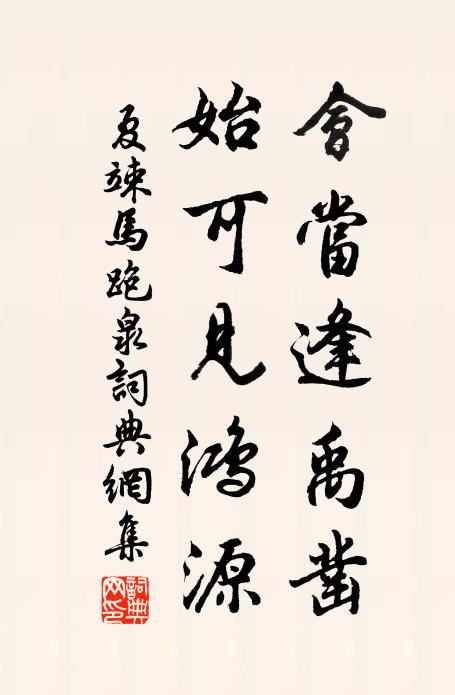 會當逢禹鑿
始可見鴻源
夏竦馬跑泉詞典網集
詞典网印